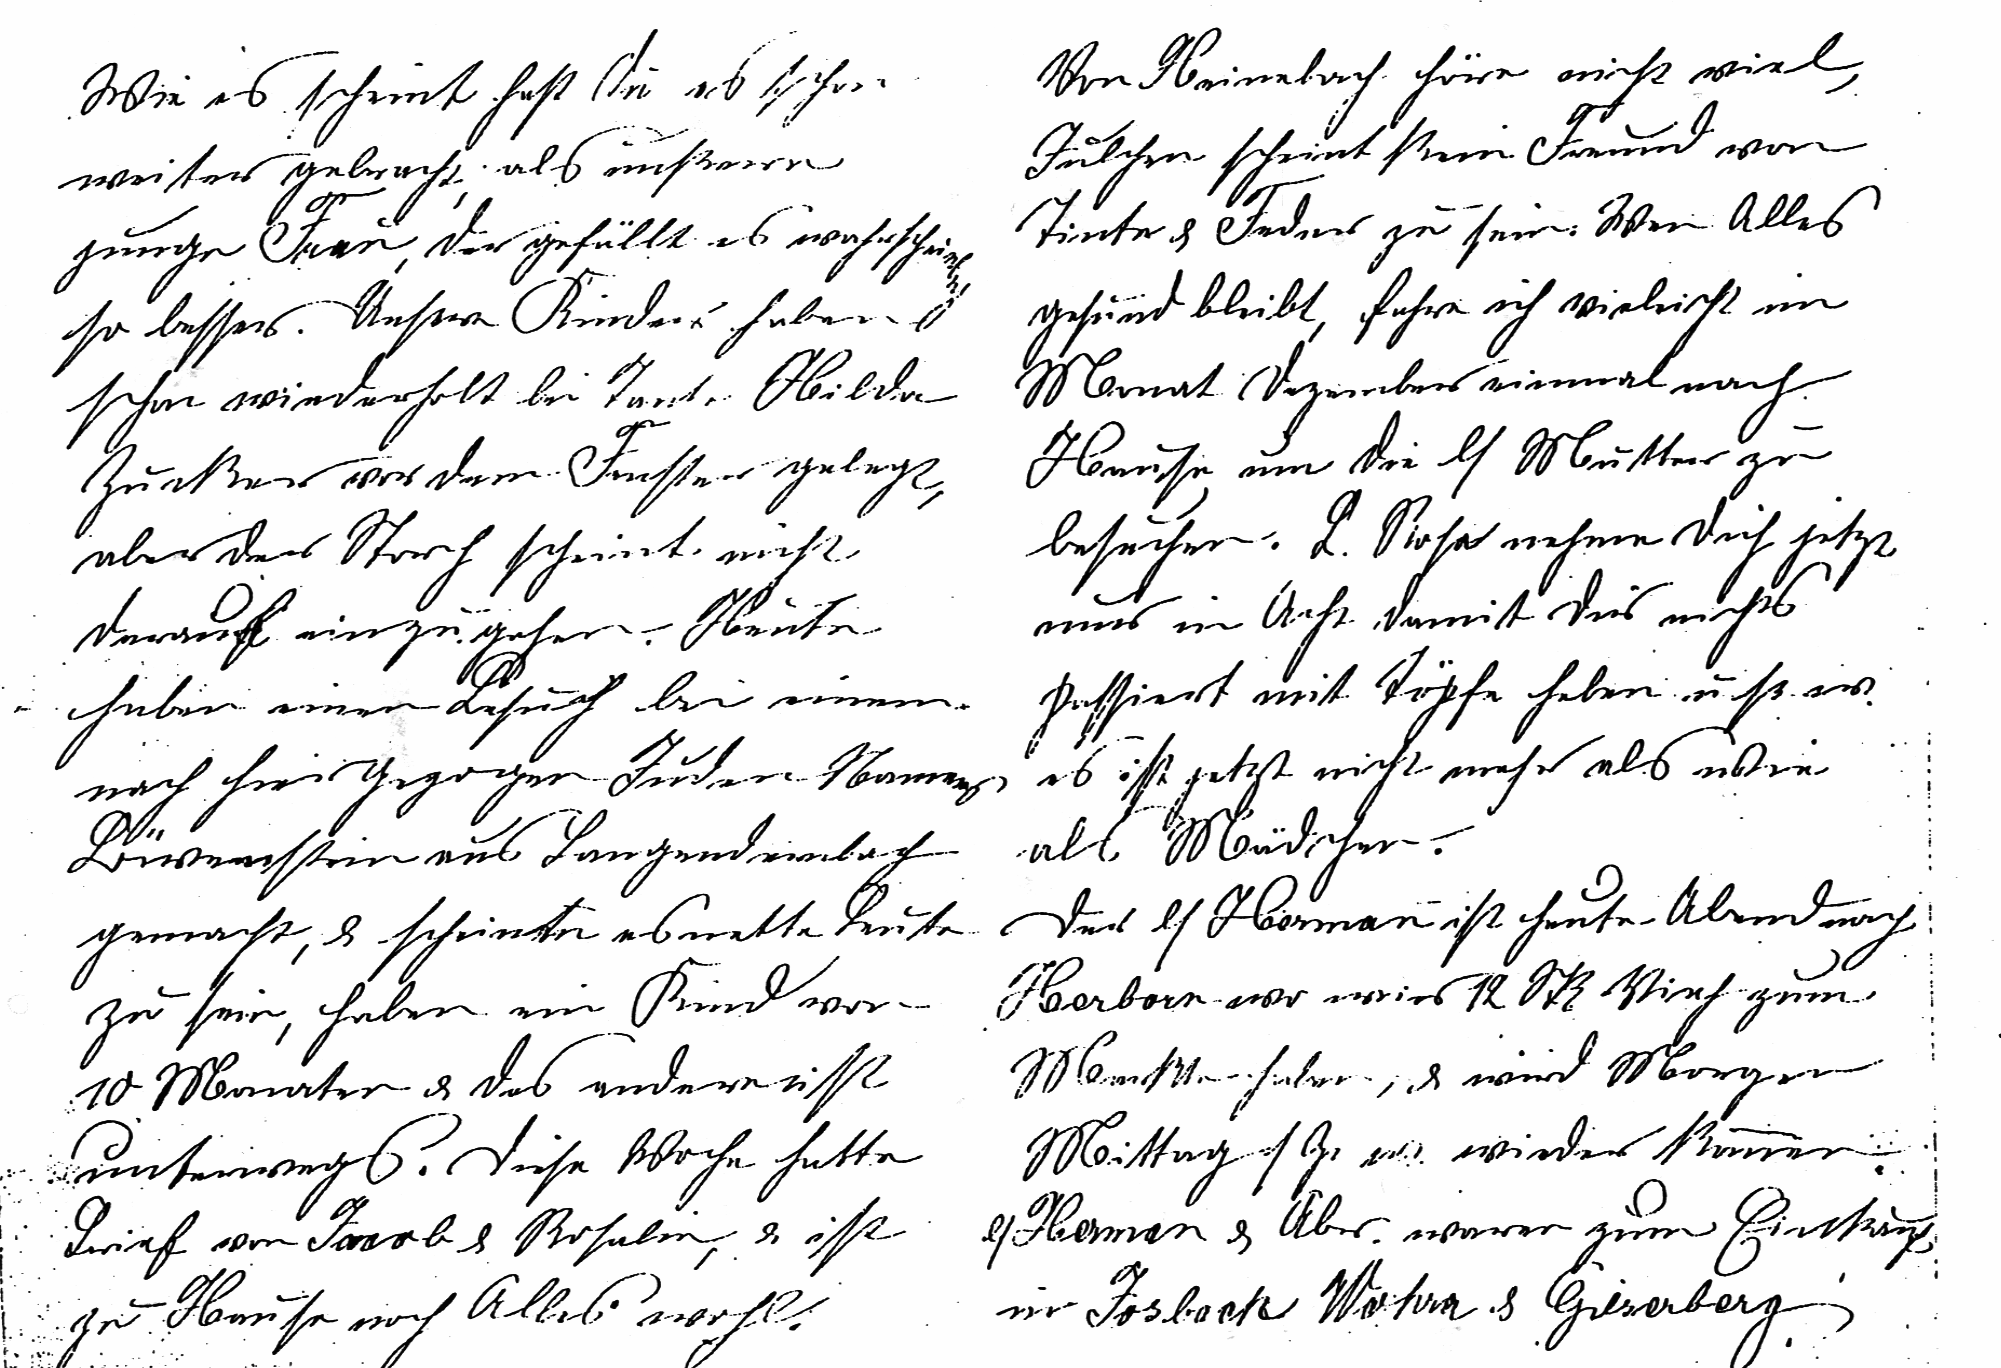 Wie es scheint hast Du es schon
weiter gebracht, als unsere
junge Frau, der gefällt es wahrscheinlich
so besser. Unsere Kinder haben
schon wiederholt bei Tante Hilda
Zucker vor dem Fenster gelegt,
aber der Storch scheint nicht
darauf einzugehen. Heute
haben einen Besuch bei einem
nach hier gezogen Juden Namens
Löwenstein aus Langendernbach
gemacht, & scheinen es nette Leute
zu sein, haben ein Kind von
10 Monaten & das andere ist
unterwegs. Diese Woche hatte
Brief von Jacob & Rosalin, & ist
zu Hause noch Alles wohl.
Von Heinebach höre nicht viel,
Julchen scheint kein Freund von
Tinte & Feder zu sein. Wen Alles
gesund bleibt, fahre ich vieleicht im
Monat Dezember einmal nach
Hause um die lb Mutter zu
besuchen. L. Rosa nehme Dich jetzt
nur in Acht damit Dir nichts
passiert mit Töpfe heben u s w.
es ist jetzt nicht mehr als wie
als Mädchen.
Der lb Herman ist heute Abend nach
Herborn wo wir 12 Stk Vieh zum
Markte haben, & wird Morgen
Mittag wieder kommen.
lb Herman & Abr. waren zum Einkauf
in Josbach Wohra & Gilserberg